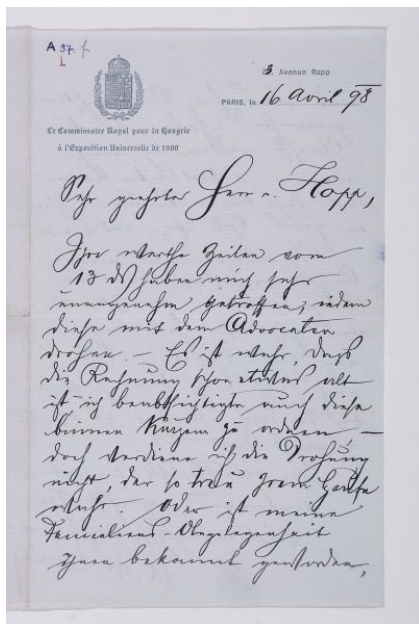 A 97. f.
L
3. Avenue Rapp
PARIS, le 16 Avril 98
Le Commissaire Royal pour la Hongrie
à l'Exposition Universelle de 1900
Sehr geehrter Herr v. Hopp,
Ihre werthe Zeilen vom
13 ds haben mich sehr
unangenehm getroffen, indem
diese mit dem Advocaten
drohen. — Es ist wahr, dass
die Rechnung schon etwas alt
ist ich beabsichtigte auch diese
binnen Kurzem zu ordnen —
doch verdiene ich die Drohung
nicht, der so treu Ihrem Hause
war. Oder ist meine
Familiens-Angelegenheit
Ihnen bekannt geworden,